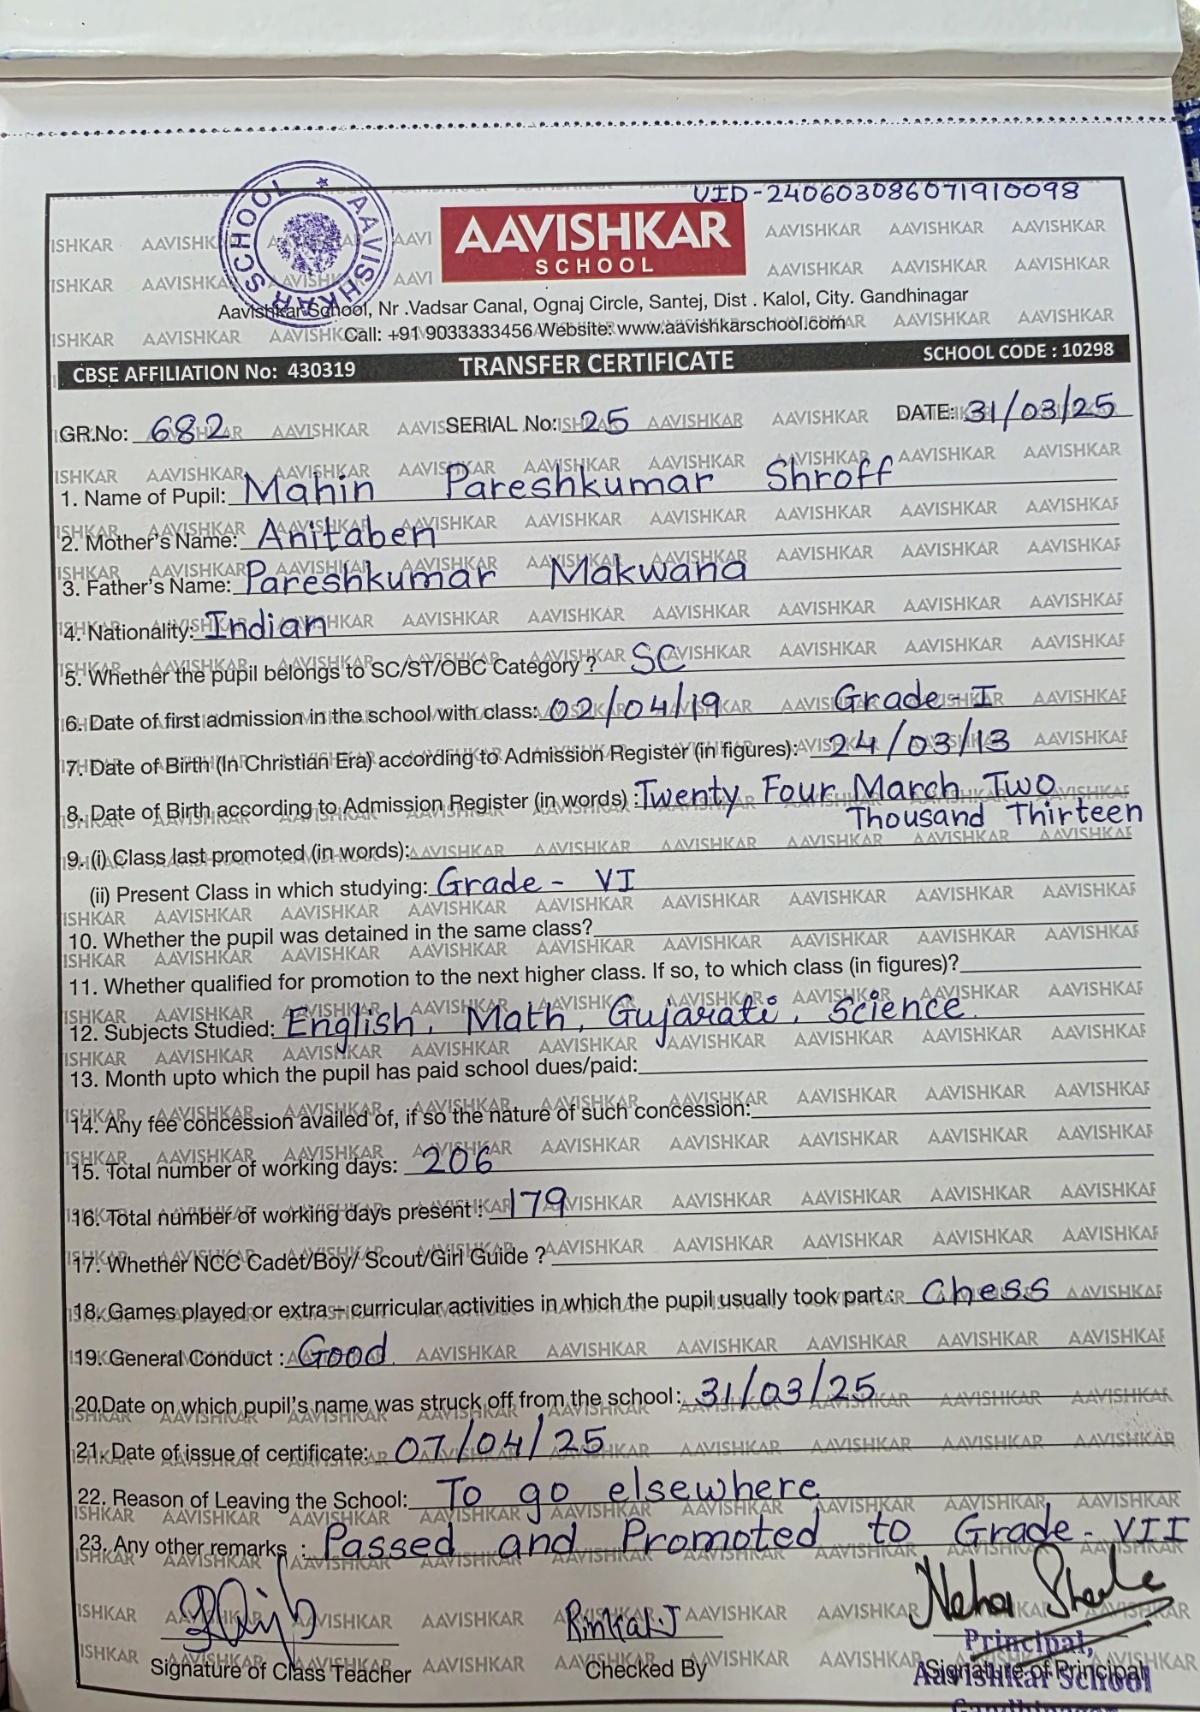 UID-240603086071910098
AAVISHKAR SCHOOL
AAVISHKAR
SCHOOL
Aavishkar School, Nr .Vadsar Canal, Ognaj Circle, Santej, Dist . Kalol, City. Gandhinagar
Call: +91 9033333456 Website: www.aavishkarschool.com
CBSE AFFILIATION No: 430319 TRANSFER CERTIFICATE SCHOOL CODE : 10298
GR.No: 682 SERIAL No: 25 DATE: 31/03/25
1. Name of Pupil: Mahin Pareshkumar Shroff
2. Mother's Name: Anitaben
3. Father's Name: Pareshkumar Makwana
4. Nationality: Indian
5. Whether the pupil belongs to SC/ST/OBC Category ? SC
6. Date of first admission in the school with class: 02/04/19 Grade - I
7. Date of Birth (In Christian Era) according to Admission Register (in figures): 24/03/13
8. Date of Birth according to Admission Register (in words) : Twenty Four March Two
Thousand Thirteen
9. (i) Class last promoted (in words):
(ii) Present Class in which studying: Grade - VI
10. Whether the pupil was detained in the same class?
11. Whether qualified for promotion to the next higher class. If so, to which class (in figures)?
12. Subjects Studied: English, Math, Gujarati, Science.
13. Month upto which the pupil has paid school dues/paid:
14. Any fee concession availed of, if so the nature of such concession:
15. Total number of working days: 206
16. Total number of working days present : 179
17. Whether NCC Cadet/Boy/ Scout/Girl Guide ?
18. Games played or extra – curricular activities in which the pupil usually took part : Chess
19. General Conduct : Good
20.Date on which pupil's name was struck off from the school: 31/03/25
21. Date of issue of certificate: 07/04/25
22. Reason of Leaving the School: To go elsewhere
23. Any other remarks : Passed and Promoted to Grade - VII
Rinkal.J
Neha
Principal,
Signature of Class Teacher Checked By Signature of Principal
Aavishkar School
Gandhinagar